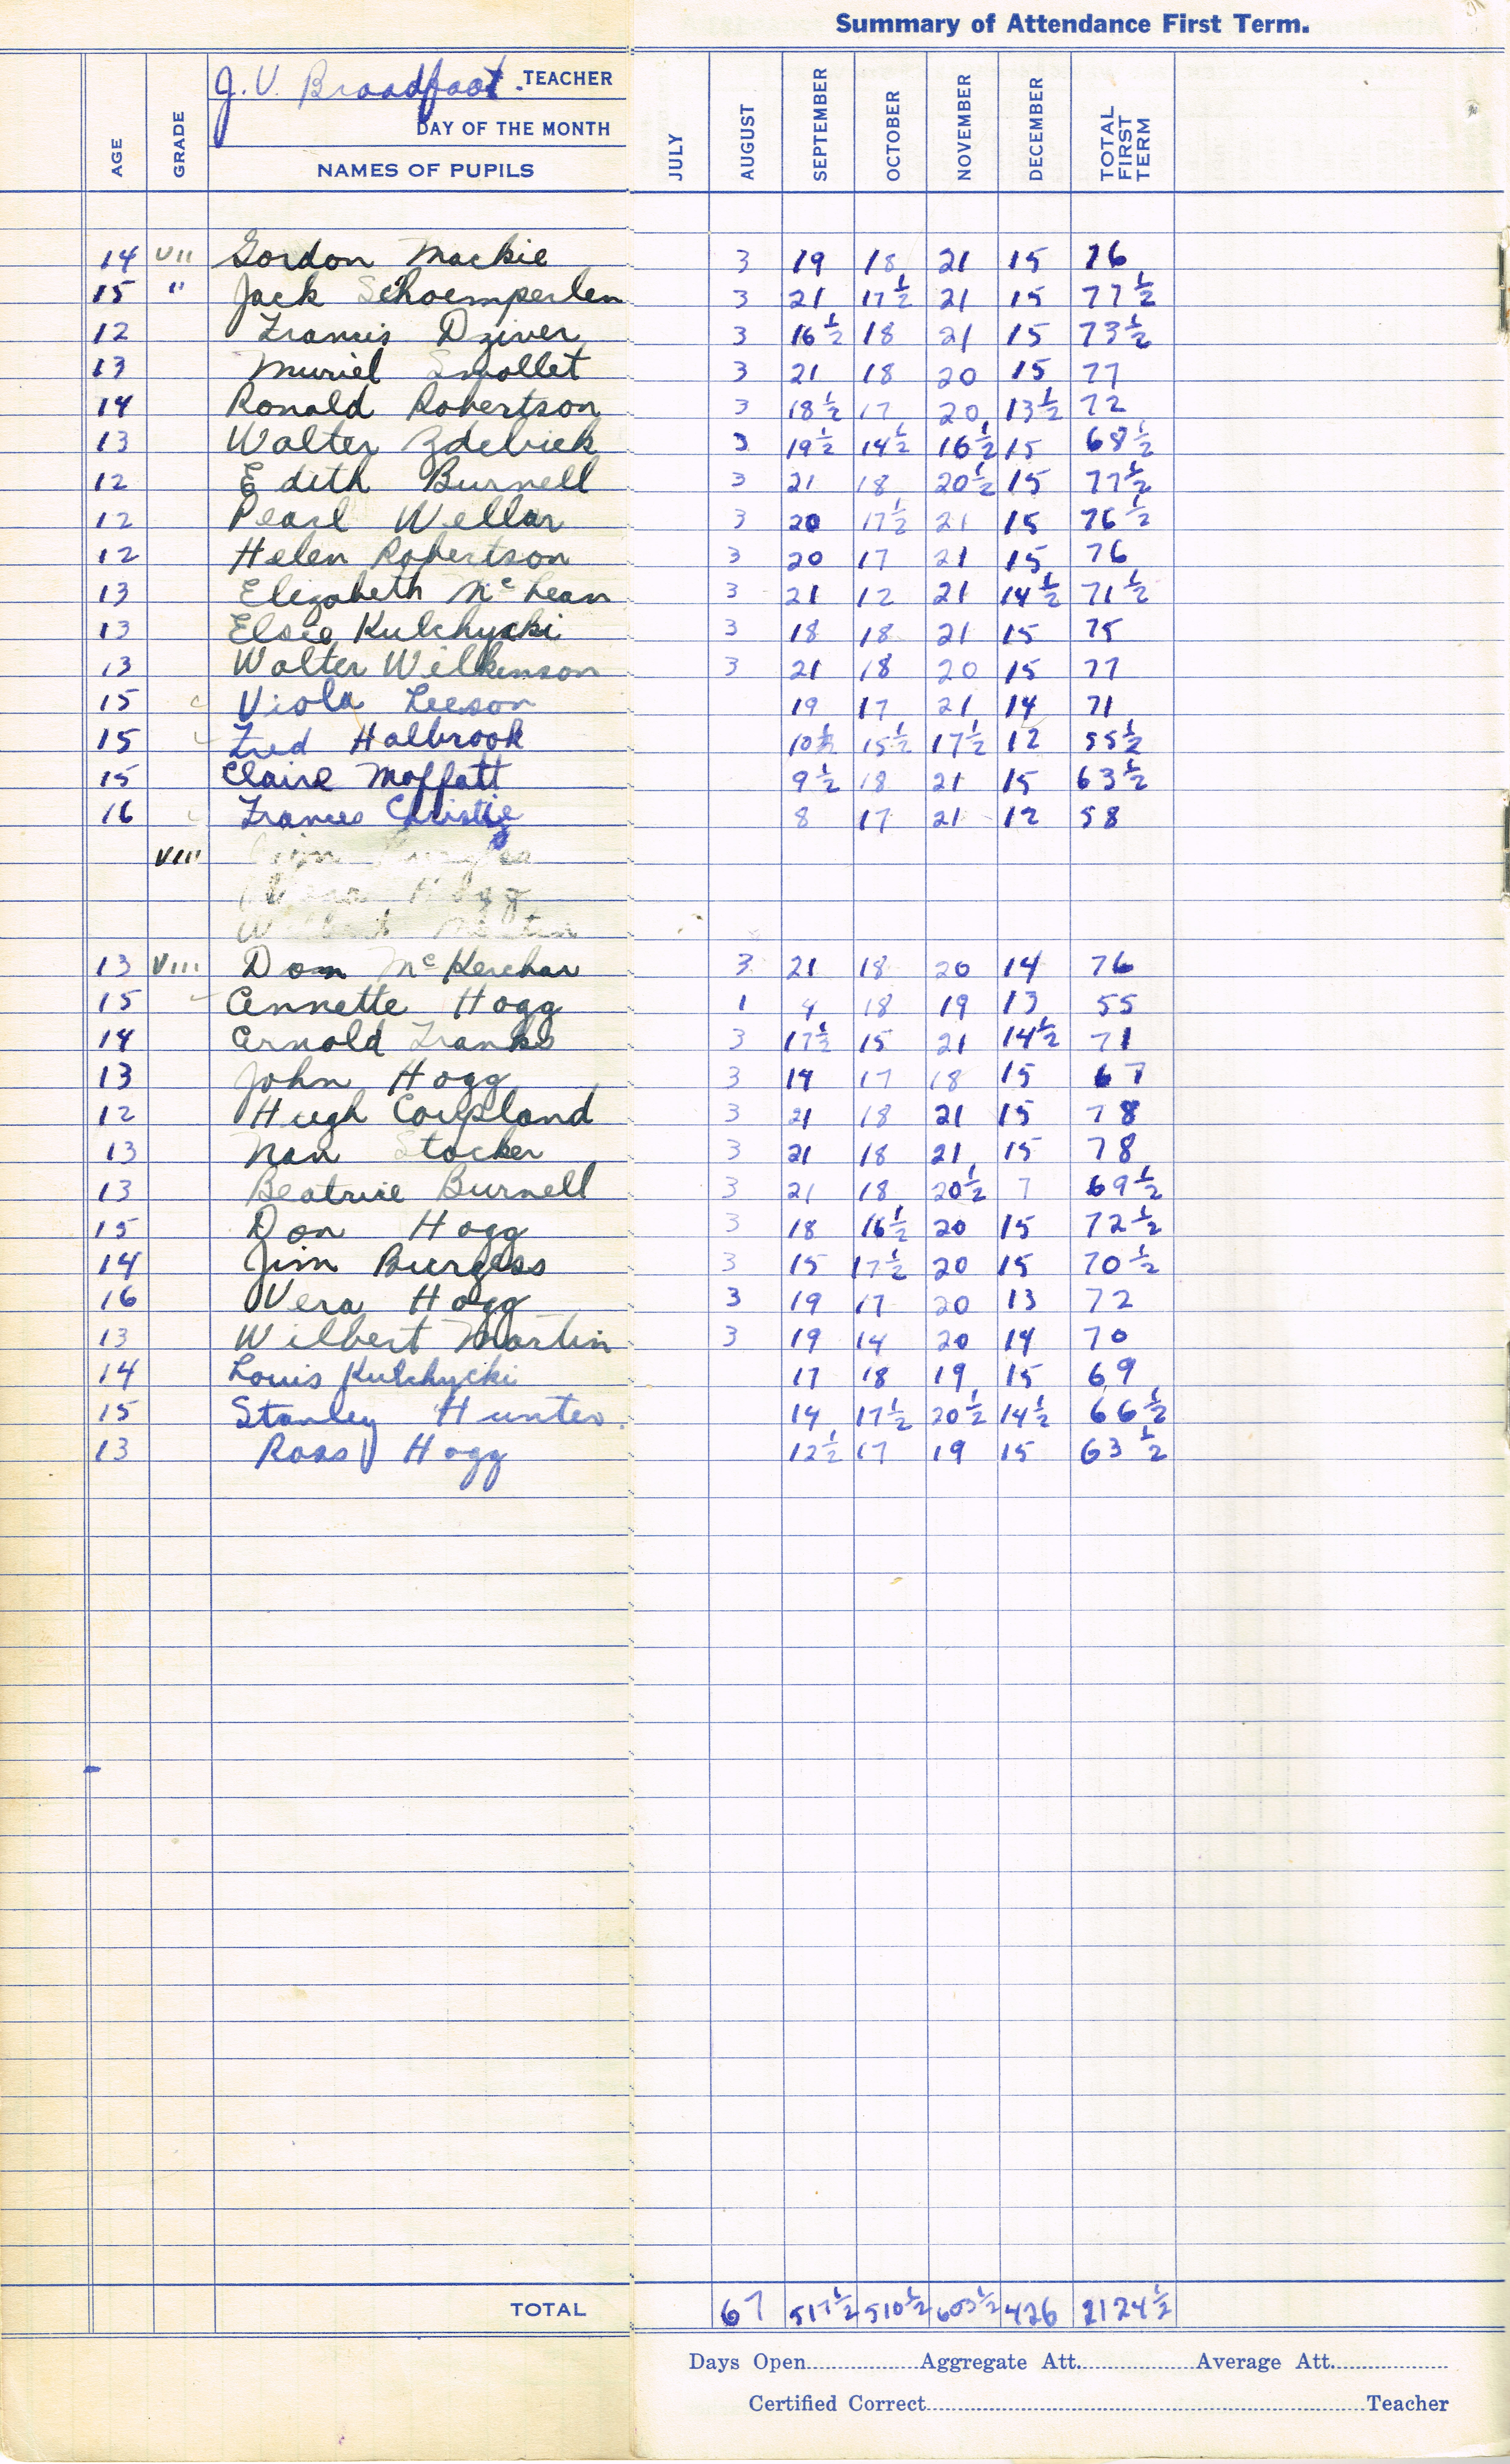 Summary of Attendance First Term.
J. V. Broadfoot. TEACHER
DAY OF THE MONTH
AGE GRADE NAMES OF PUPILS JULY AUGUST SEPTEMBER OCTOBER NOVEMBER DECEMBER TOTAL FIRST TERM
14 VII Gordon Mackie 3 19 18 21 15 76
15 " Jack Schoemperlen 3 21 17½ 21 15 77½
12 Francis Dziver 3 16½ 18 21 15 73½
13 Muriel Smollet 3 21 18 20 15 77
14 Ronald Robertson 3 18½ 17 20 13½ 72
13 Walter Zdebiek 3 19½ 14½ 16½ 15 68½
12 Edith Burnell 3 21 18 20½ 15 77½
12 Pearl Wellar 3 20 17½ 21 15 76½
12 Helen Robertson 3 20 17 21 15 76
13 Elizabeth McLean 3 21 12 21 14½ 71½
13 Elsie Kulchycki 3 18 18 21 15 75
13 Walter Wilkinson 3 21 18 20 15 77
15 Viola Leeson 19 17 21 14 71
15 Fred Halbrook 10½ 15½ 17½ 12 55½
15 Claire Moffatt 9½ 18 21 15 63½
16 Frances Christie 8 17 21 12 58
VIII Jim Burgess
Vera Hogg
Wilbert Martin
13 VIII Don McKerchar 3 21 18 20 14 76
15 Annette Hogg 1 4 18 19 13 55
14 Arnold Franks 3 17½ 15 21 14½ 71
13 John Hogg 3 14 17 18 15 67
12 Hugh Coupland 3 21 18 21 15 78
13 Nan Stocker 3 21 18 21 15 78
13 Beatrice Burnell 3 21 18 20½ 7 69½
15 Don Hogg 3 18 16½ 20 15 72½
14 Jim Burgess 3 15 17½ 20 15 70½
16 Vera Hogg 3 19 17 20 13 72
13 Wilbert Martin 3 19 14 20 14 70
14 Louis Kulchycki 17 18 19 15 69
15 Stanley Hunter. 14 17½ 20½ 14½ 66½
13 Ross Hogg 12½ 17 19 15 63½
TOTAL 67 517½ 510½ 603½ 426 2124½
Days Open Aggregate Att. Average Att.
Certified Correct Teacher